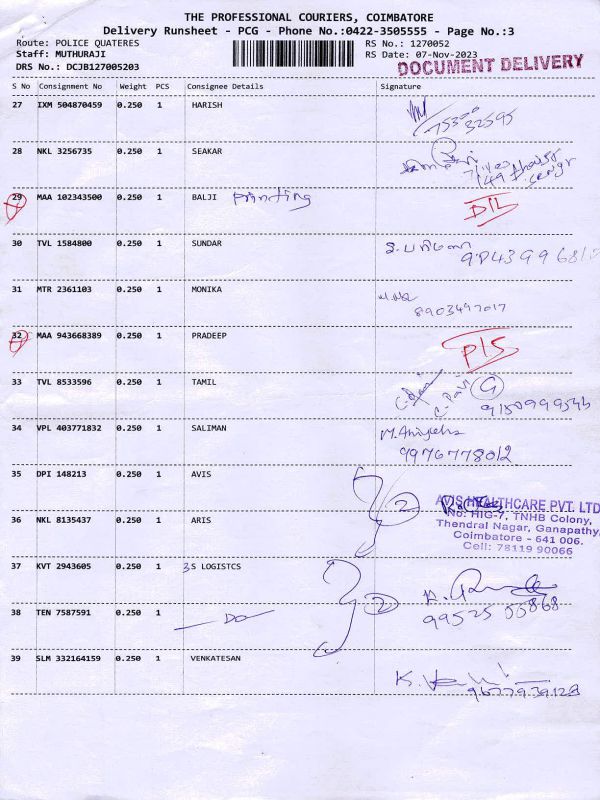 THE PROFESSIONAL COURIERS, COIMBATORE
Delivery Runsheet - PCG - Phone No.:0422-3505555 - Page No.:3
Route: POLICE QUATERES RS No.: 1270052
Staff: MUTHURAJI RS Date: 07-Nov-2023
DRS No.: DCJB127005203 DOCUMENT DELIVERY
S No Consignment No Weight PCS Consignee Details Signature
27 IXM 504870459 0.250 1 HARISH
75300 32595
28 NKL 3256735 0.250 1 SEAKAR
29 MAA 102343500 0.250 1 BALJI Printing D/L
30 TVL 1584800 0.250 1 SUNDAR
31 MTR 2361103 0.250 1 MONIKA
8903497017
32 MAA 943668389 0.250 1 PRADEEP P/S
33 TVL 8533596 0.250 1 TAMIL
34 VPL 403771832 0.250 1 SALIMAN
9976778012
35 DPI 148213 0.250 1 AVIS 2
AVIS HEALTHCARE PVT. LTD
No: HIG-7, TNHB Colony,
36 NKL 8135437 0.250 1 ARIS
Thendral Nagar, Ganapathy,
Coimbatore - 641 006.
Cell: 78119 90066
37 KVT 2943605 0.250 1 3S LOGISTCS 2
99525 55868
38 TEN 7587591 0.250 1 — Do —
39 SLM 332164159 0.250 1 VENKATESAN